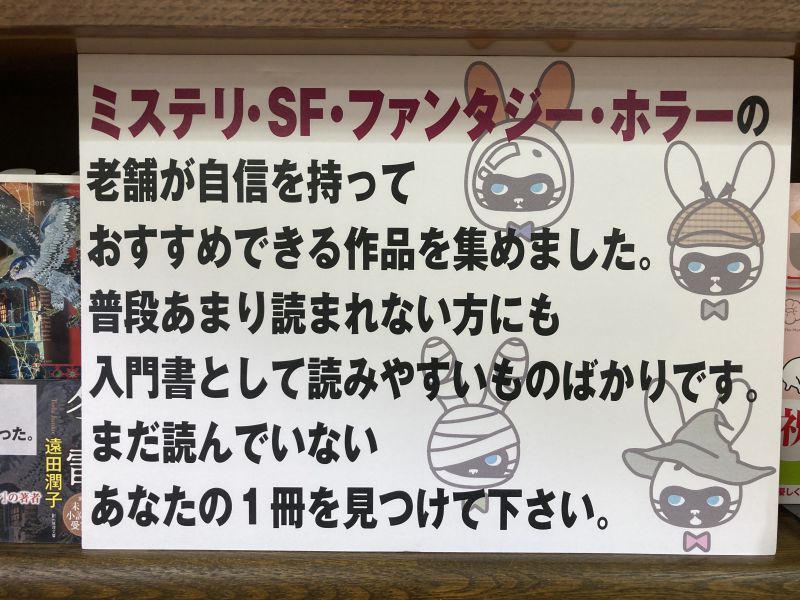 ミステリ・SF・ファンタジー・ホラーの
老舗が自信を持って
おすすめできる作品を集めました。
普段あまり読まれない方にも
入門書として読みやすいものばかりです。
まだ読んでいない
あなたの1冊を見つけて下さい。
った。
の著者
遠田潤子